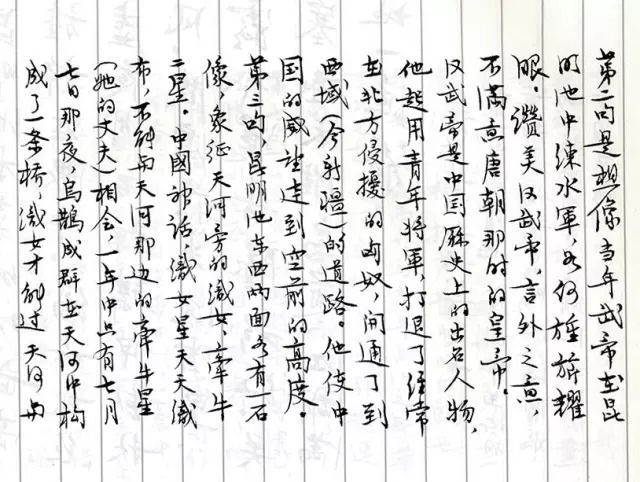 第二句是想像当年武帝在昆
明池中練水軍，如何旌旂耀
眼。讚美汉武帝，言外之意，
不满意唐朝那时的皇帝。
汉武帝是中国歷史上的出名人物，
他起用青年将軍，打退了经常
在北方侵擾的匈奴，開通了到
西域（今新疆）的道路。他使中
国的威望達到空前的高度。
第三句，昆明池东西两面各有一石
像，象征天河旁的織女、牽牛
二星。中國神話，織女星天天織
布，不能与天河那边的牽牛星
（她的丈夫）相会，一年中只有七月
七日那夜，烏鵲成群在天河中构
成了一条桥，織女才能过天河与